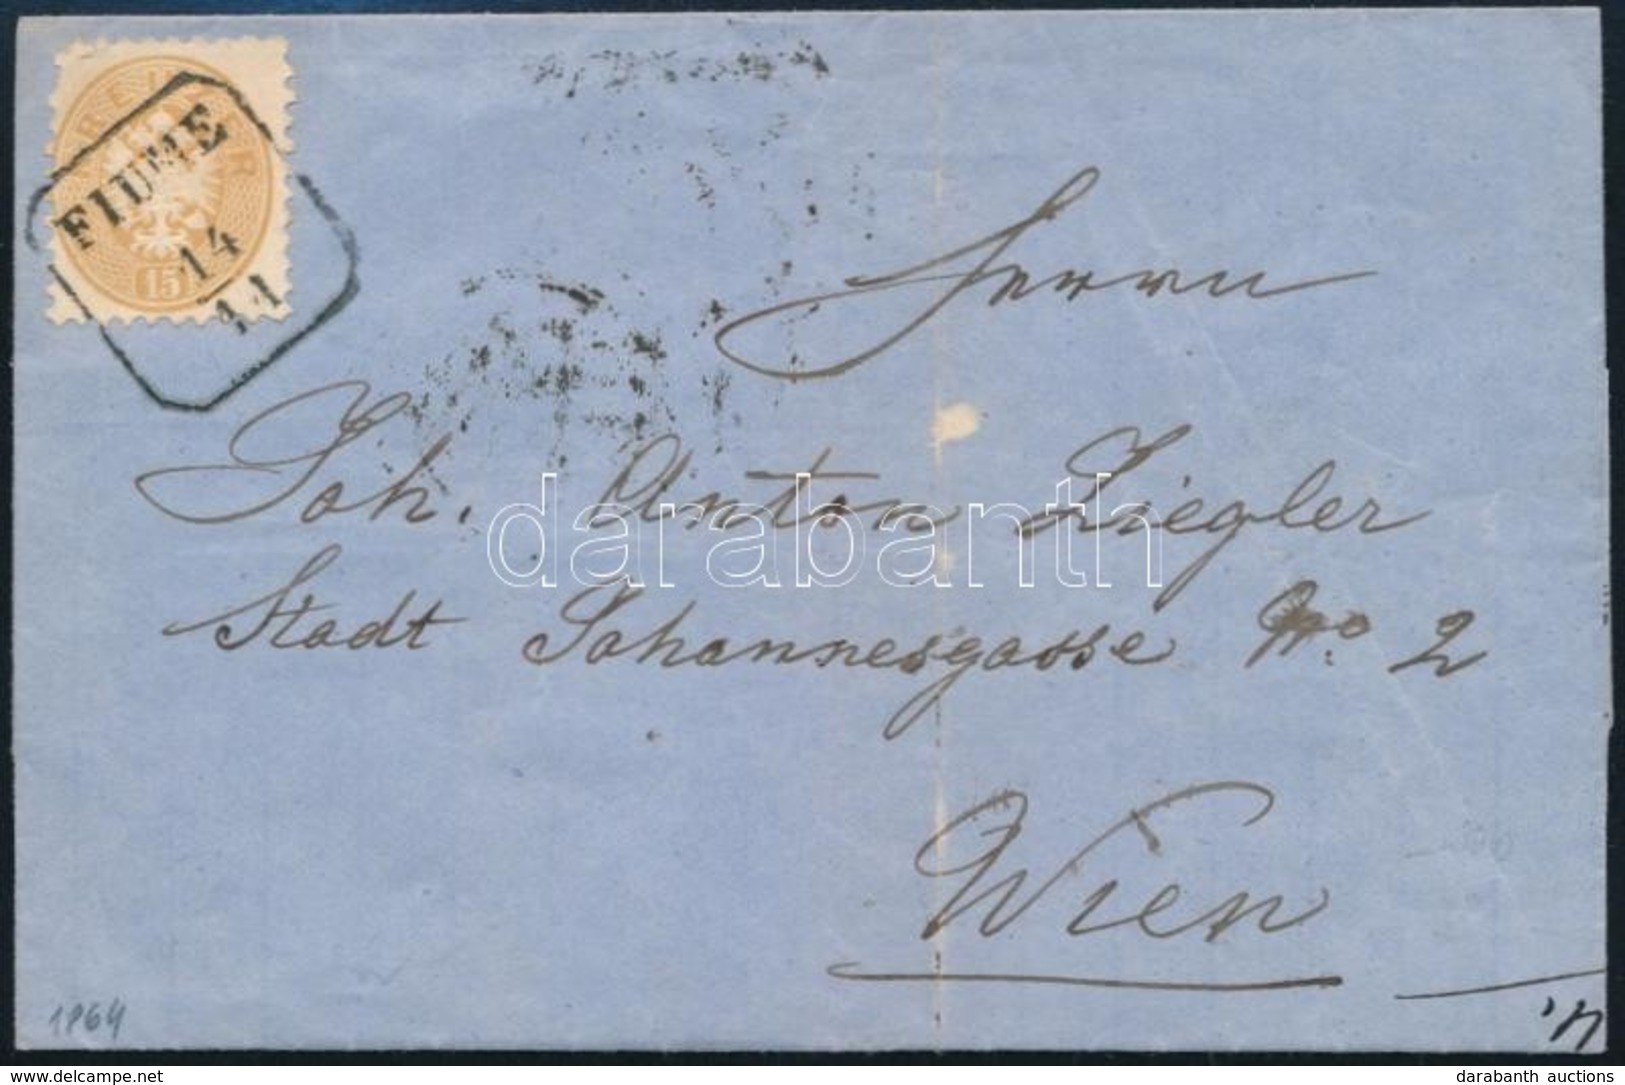 KREUZER
15
FIUME
14
11
Herrn
Joh. Anton Ziegler
Stadt Johannesgasse No. 2
Wien
1864
darabanth
delcampe.net
darabanth auctions